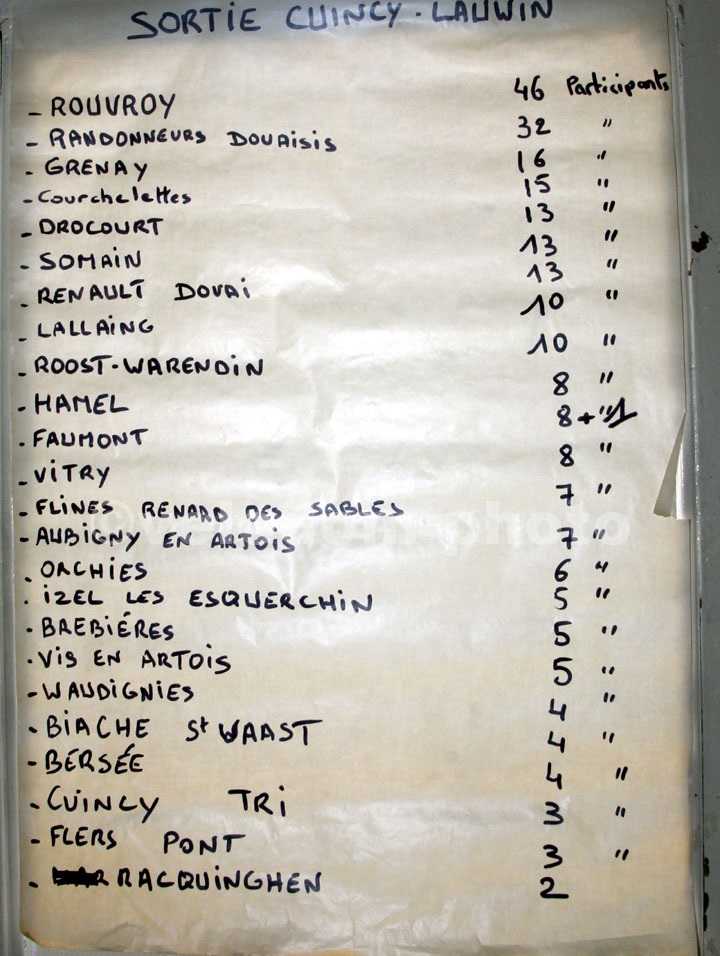 SORTIE CUINCY - LAUWIN
- ROUVROY 46 Participants
- RANDONNEURS DOUAISIS 32 "
- GRENAY 16 "
- Courchelettes 15 "
- DROCOURT 13 "
- SOMAIN 13 "
- RENAULT DOUAI 13 "
- LALLAING 10 "
- ROOST-WARENDIN 10 "
- HAMEL 8 "
- FAUMONT 8 + "1
- VITRY 8 "
- FLINES RENARD DES SABLES 7 "
- AUBIGNY EN ARTOIS 7 "
. ORCHIES 6 "
. IZEL LES ESQUERCHIN 5 "
- BREBIÉRES 5 "
- VIS EN ARTOIS 5 "
- WAUDIGNIES 4 "
- BIACHE St WAAST 4 "
- BERSÉE 4 "
- CUINCY TRI 3 "
- FLERS PONT 3 "
- RACQUINGHEN 2